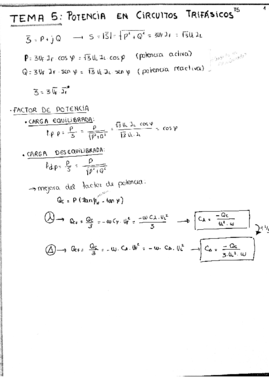 TEMA 5: POTENCIA EN CIRCUITOS TRIFÁSICOS
S = P + jQ → S = |S| = √P²+Q² = 3Uf If = √3 UL IL
P = 3Uf If cos φ = √3 UL IL cos φ (potencia activa)
Q = 3Uf If · sen φ = √3 UL IL sen φ (potencia reactiva)
S = 3 Uf If*
- FACTOR DE POTENCIA
• CARGA EQUILIBRADA:
f.d.p = P/S = P/√P²+Q² = √3 UL IL cos φ/√3 UL IL = cos φ
• CARGA DESEQUILIBRADA:
f.d.p = P/S = P/√P²+Q²
→ mejora del factor de potencia.
Qc = P (tan φ' - tan φ)
→ Qcλ = Qc/3 = -ω Cλ · Uf² = -ω Cλ · UL²/3 → Cλ = -Qc/UL² · ω
Δ → QcΔ = Qc/3 = -ω · CΔ · Uf² = -ω · CΔ · UL² → CΔ = -Qc/3 · UL² · ω